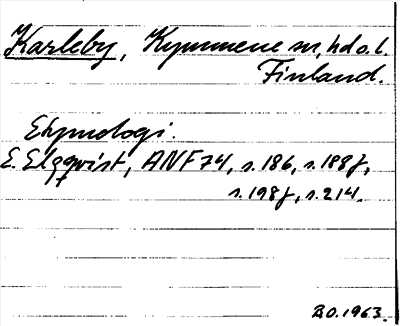 Karleby, Kymmene sn, hd o. l.
Finland.
Etymologi.
E. Elgqvist, ANF 74, s. 186, s. 188f,
s. 198f, s. 214.
B.O. 1963.